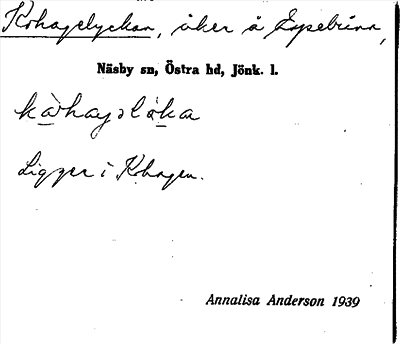 Kohagelyckan, åker å Espebränn,
Näsby sn, Östra hd, Jönk. l.
Ligger i Kohagen.
Annalisa Anderson 1939